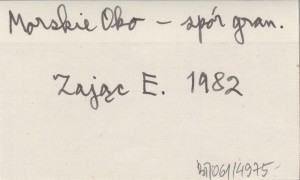 Morskie Oko – spór gran.
Zając E. 1982
BJ/061/4975-